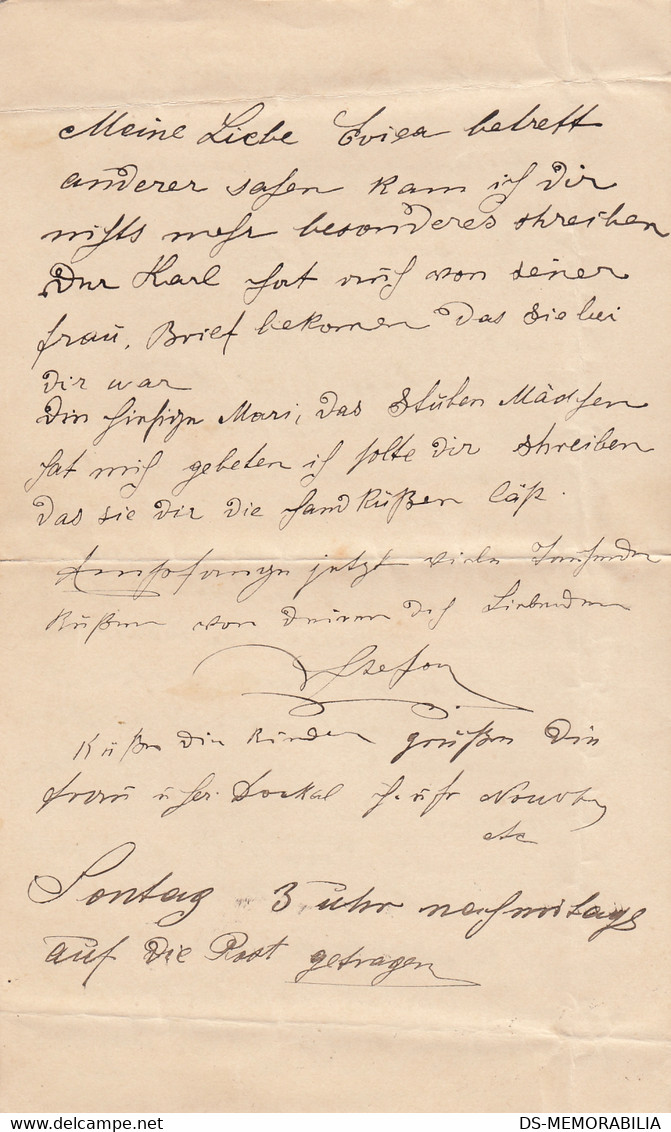 Meine Liebe Evica betreff
anderer sahen kan ich dir
nihts mehr besonderes shreiben
Der Karl hat auch von seiner
frau, Brief bekomen das Sie bei
dir war
Die hiesige Mari, das Stuben Mädchen
hat mich gebeten ich solte dir shreiben
das sie dir die handküßen läß.
Empfange jetzt viele Tausende
Küßen von deinen dich Liebenden
Stefan
Küße die Kinder grüßen die
frau u her. h. u fr
etc
Sontag 3 uhr nachmitags
auf die Post getragen
DS-MEMORABILIA